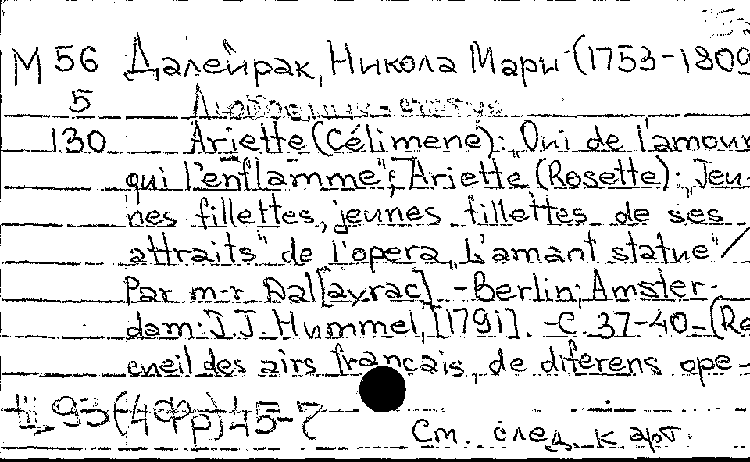 М 56 Далейрак, Никола Мари (1753-1809
5 Любовник-статуя
130 Ariette (Célimene): „Oui de l'amour
qui l'enflamme"; Ariette (Rosette): „Jeu-
nes fillettes, jeunes fillettes de ses
attraits" de l'opera „L'amant statue"/
Par m-r Dal[ayrac]. - Berlin; Amster-
dam: J.J. Hummel, [1791]. - С. 37-40 - (Re
cueil des airs français, de diferens ope-
Ш 93(4Фр)45-7
См. след. к арт.